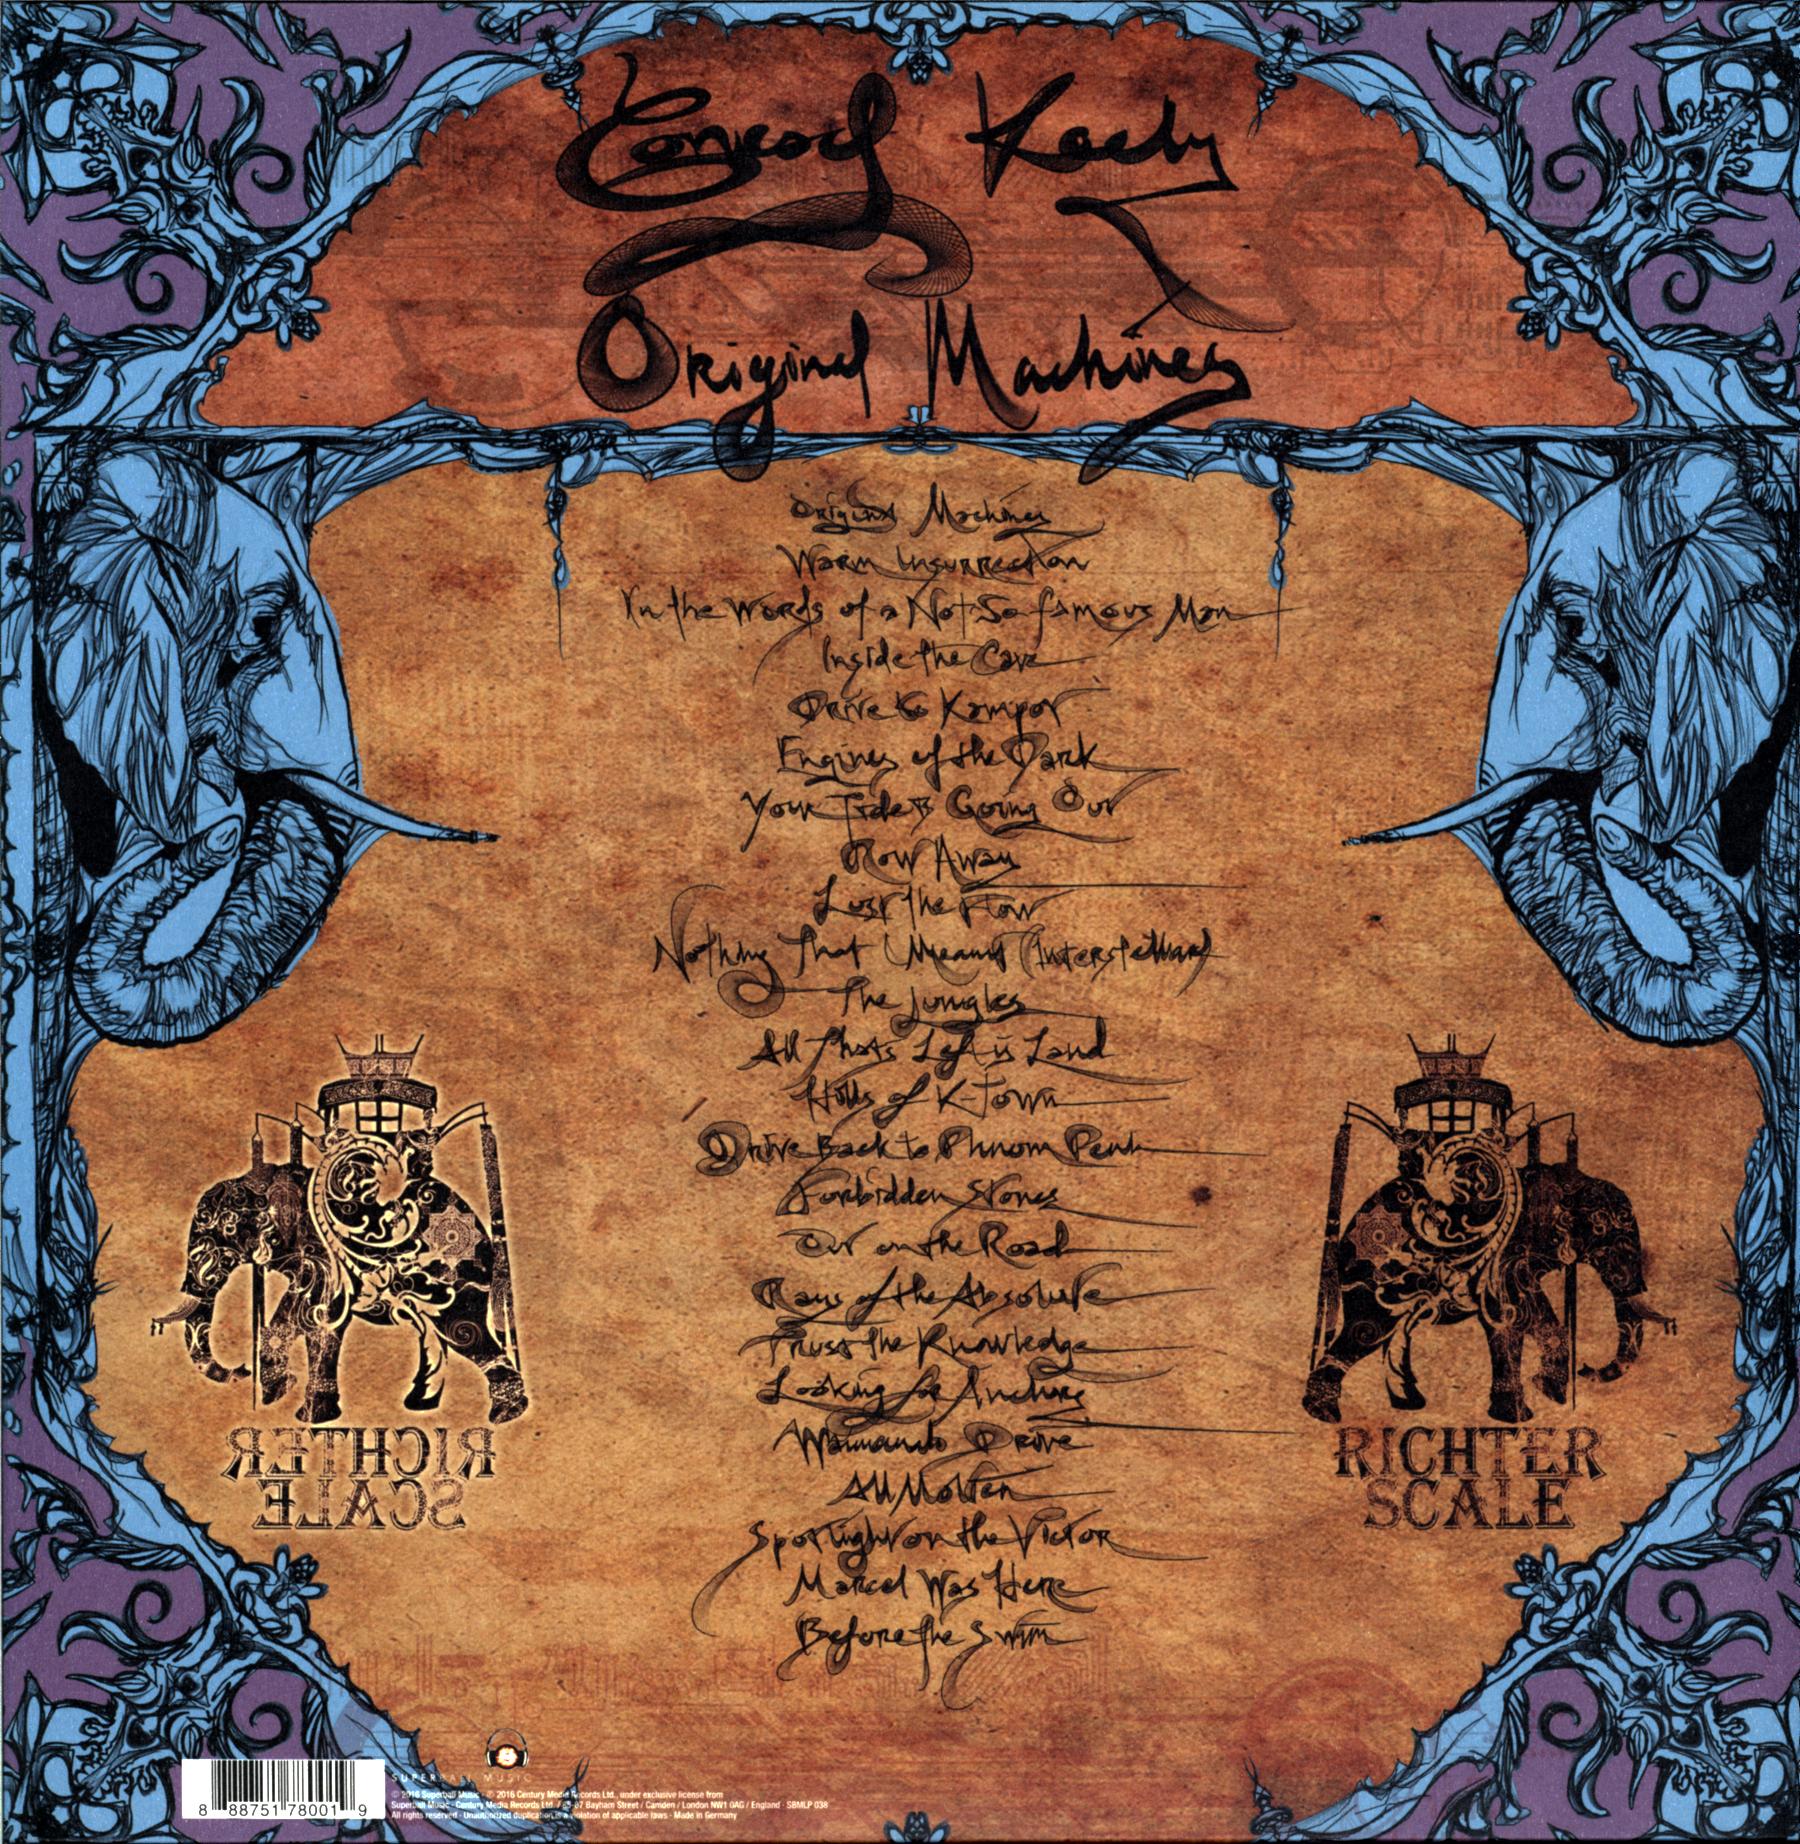 Conrad Keely
Original Machines
Original Machines
Warm Insurrection
In the Words of a Not-So-famous Man
Inside the Cave
Drive to Kampot
Engines of the Dark
Your Tide is Going Out
Row Away
Lost the Flow
Nothing That I Meant (Interstellar)
The Jungles
All Thats Left is Land
Hills of K-Town
Drive Back to Phnom Penh
Forbidden Stones
Out on the Road
Rays of the Absolute
Trust the Knowledge
Looking for Anchors
Waimanalo Drive
All Molten
Spotlight on the Victor
Marcel Was Here
Before the Swim
RICHTER
SCALE
RICHTER
SCALE
SUPERBALL MUSIC
8 88751 78001 9
℗ 2016 Superball Music · © 2016 Century Media Records Ltd., under exclusive license from
Superball Music · Century Media Records Ltd. / Bayham Street / Camden / London NW1 0AG / England · SBMLP 038
All rights reserved · Unauthorized duplication is a violation of applicable laws · Made in Germany